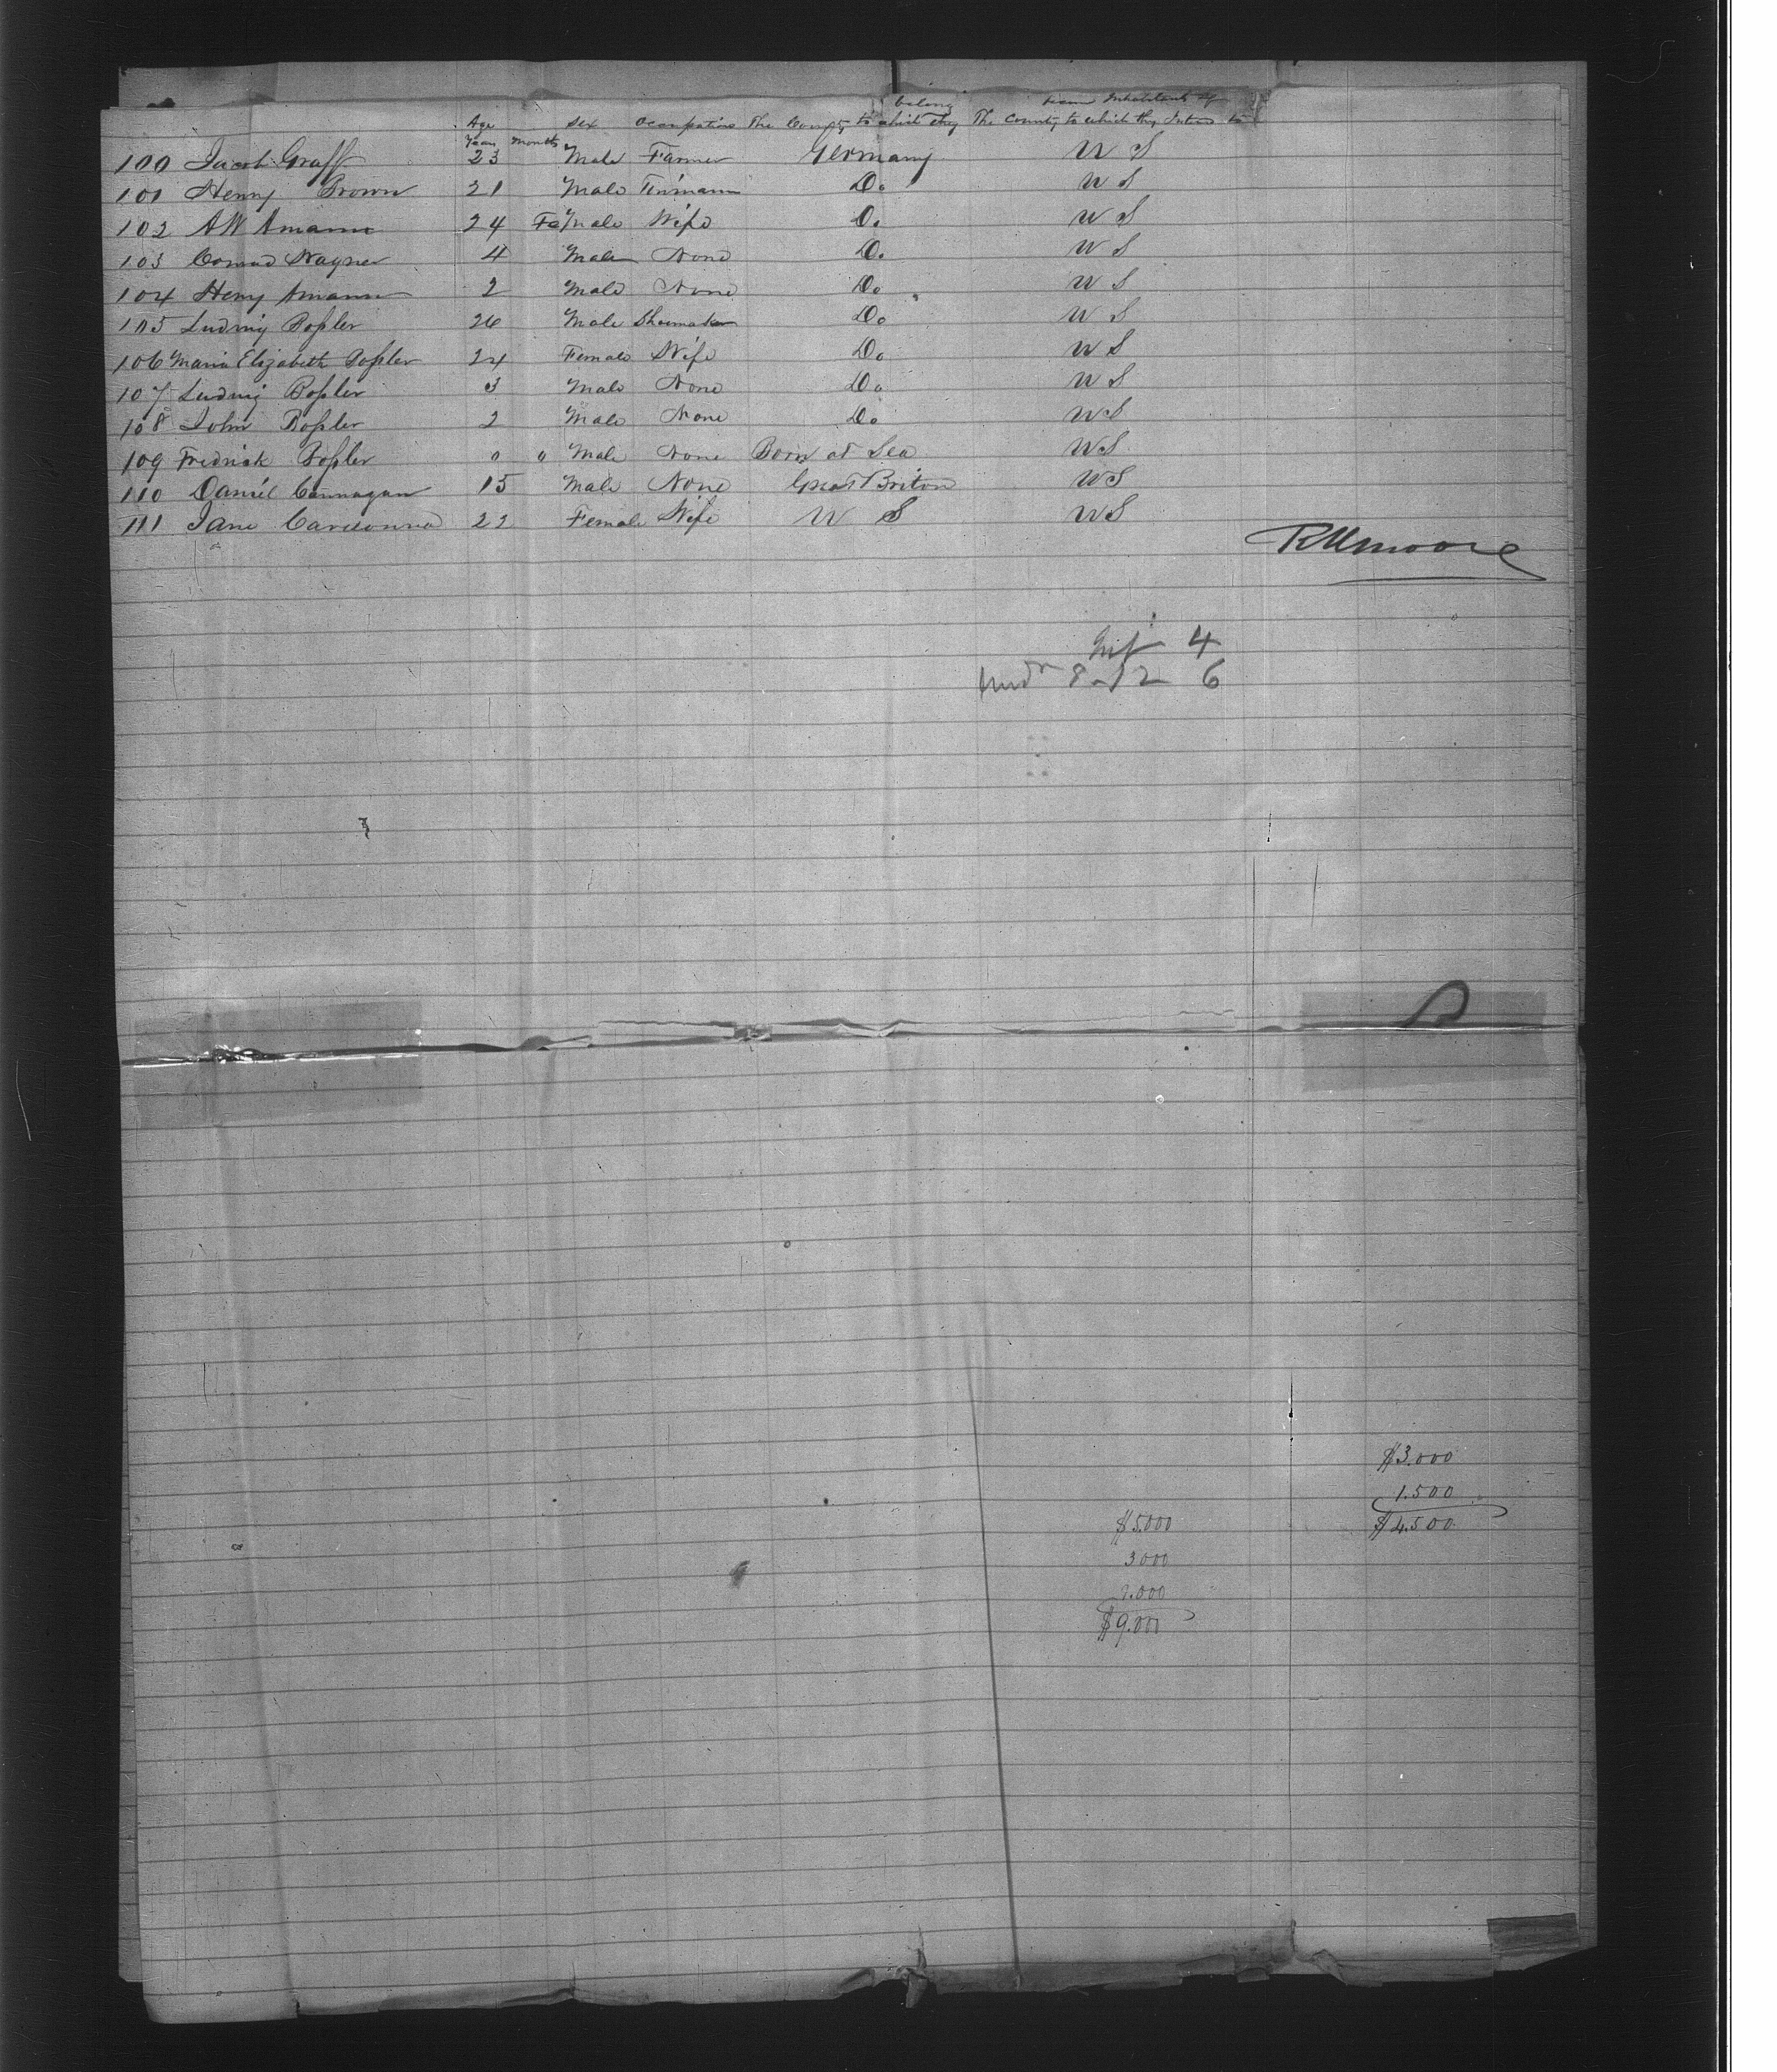 belong become Inhabitants of
Age Sex Occupation The County to which they The County to which they Intend to
Years Months
100 Jacob Graff 23 Male Farmer Germany U S
101 Henry Brown 21 Male Tinmann Do U S
102 AW Amann 24 FeMale Wife Do U S
103 Conrad Wagner 4 Male None Do U S
104 Henry Amann 2 Male None Do U S
105 Ludwig Boßler 26 Male Shoemaker Do U S
106 Maria Elizabeth Boßler 24 Female Wife Do U S
107 Ludwig Boßler 3 Male None Do U S
108 John Boßler 2 Male None Do U S
109 Fredrick Boßler 0 0 Male None Born at Sea U S
110 Daniel Cannagan 15 Male None Great Briton U S
111 Jane 22 Female Wife U S U S
RMmoore
Inf 4
und 8-12 6
$3.000
1.500
$4.500
$5.000
3000
1.000
$9.000